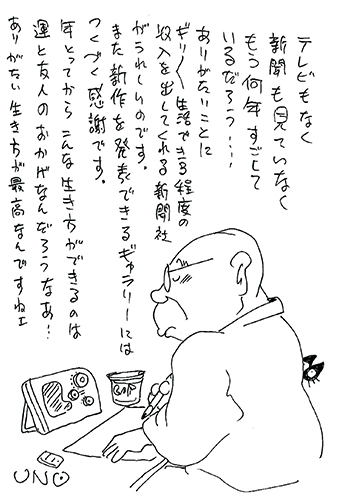 テレビもなく
新聞も見ていなく
もう何年すごして
いるだろう・・・・
ありがたいことに
ギリギリ生活できる程度の
収入を出してくれる新聞社
がうれしいのです。
また新作を発表できるギャラリーには
つくづく感謝です。
年とってからこんな生き方ができるのは
運と友人のおかげなんだろうなあ・・
ありがたい生き方が最高なんですねエ
CUP
UNO